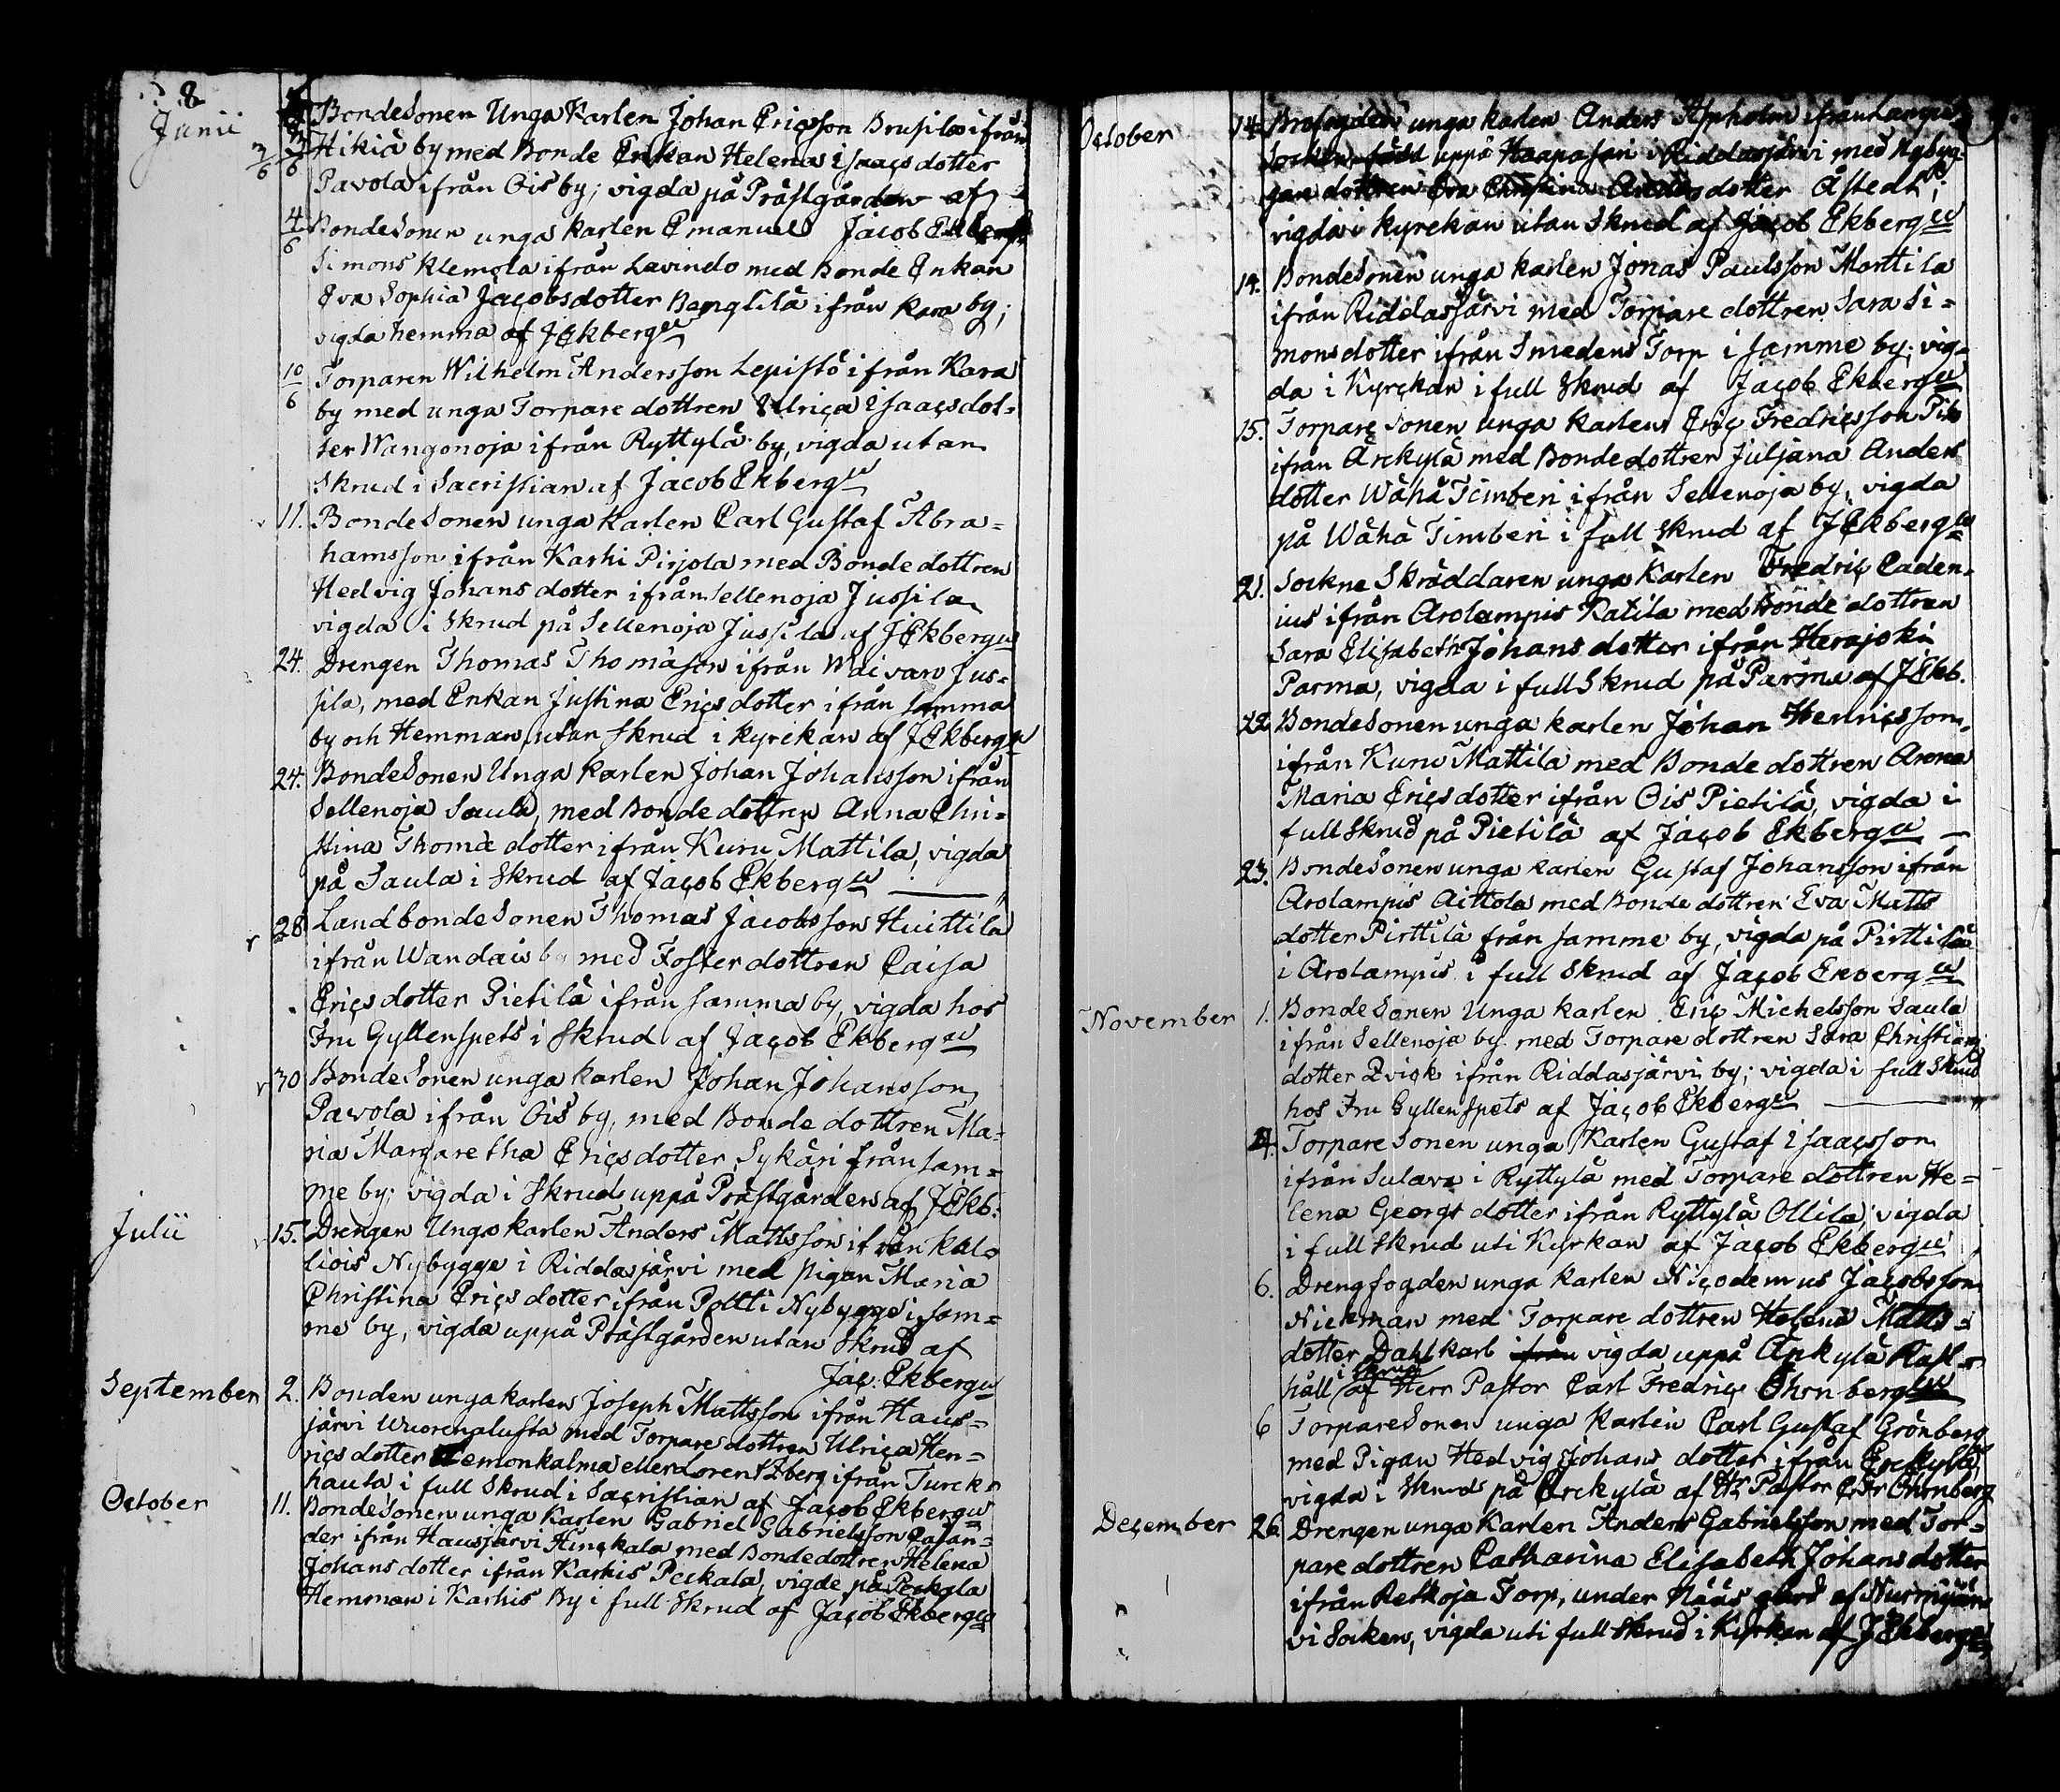 8
Junii
3/6 BondeSonen Unga Karlen Johan Ericsson Brusila ifrån
Hikiä by med Bonde Enkan Helena Isaacs dotter
Pavola ifrån Ois by; vigda på Prästgården af
4/6 BondeSonen unga Karlen Emanuel Jacob Ekberg
Simons Klemola ifrån Lavindo med Bonde Enkan
Eva Sophia Jacobsdotter Bengtilä ifrån Kara by;
vigda hemma af JEkberg
10/6 Torparen Wilhelm Andersson Lepistö ifrån Kara
by med unga Torpare dottren Ulrica Isaacsdot=
ter Wangonoja ifrån Ryttylä by, vigda utan
Skrud i Sacristian af Jacob Ekberg
11. BondeSonen unga Karlen Carl Gustaf Abra=
hamsson ifrån Karhi Pirjola med Bonde dottren
Hedvig Johans dotter ifrån Sellenoja Jussila
vigda i Skrud på Sellenoja Jussila af JEkberg
24. Drengen Thomas Thomasson ifrån Waivaro Jus=
sila, med Enkan Justina Erics dotter ifrån Samma
by och Hemman, utan Skrud i Kyrckan af JEkberg
24. BondeSonen Unga Karlen Johan Johansson ifrån
Sellenoja Saula, med Bonde dottren Anna Chri=
stina Thomæ dotter ifrån Kuru Mattila, vigda
på Saula i Skrud af Jacob Ekberg
28 LandbondeSonen Thomas Jacobsson Huittila
ifrån Wandais by med Foster dottren Caisa
Erics dotter Pietilä ifrån Samma by, vigda hos
Fru Gyllenspets i Skrud af Jacob Ekberg
30 BondeSonen unga Karlen Johan Johansson
Pavola ifrån Ois by, med Bonde dottren Ma=
ria Margaretha Ericsdotter Sykäri från Sam=
me by; vigda i Skrud uppå Prästgården af JEkb:
Julii 15. Drengen Unga Karlen Anders Mattsson ifrån Kal=
liois Nybygge i Riddasjärvi med Pigan Maria
Christina Erics dotter ifrån Poltti Nybygge i Sam=
me by, vigda uppå Prästgården utan Skrud af
Jac: Ekberg
September 2. Bonden unga Karlen Joseph Mattsson ifrån Haus=
järvi Wuorenalusta med Torpare dottren Ulrica Hen=
rics dotter Lemonkalma eller Lorentzberg ifrån Turck=
hauta i full Skrud i Sacristian af Jacob Ekberg
October 11. BondeSonen unga Karlen Gabriel Gabrielsson Casan=
der ifrån Hausjärvi Hinckala med Bondedottren Helena
Johans dotter ifrån Karhis Peckala, vigde på Peckala
Hemman i Karhis By i full Skrud af Jacob Ekberg
9.
October 14. unga Karlen Anders ifrån
Socken uppå Haapasari i Riddasjärvi med Nybyg=
gare dottren Eva Christina Anders dotter Åstedt;
vigda i Kyrckan utan Skrud af Jacob Ekberg
14. BondeSonen unga Karlen Jonas Paulsson Marttila
ifrån Riddasjärvi med Torpare dottren Sara Si=
mons dotter ifrån Smedens Torp i Samme by; vig=
da i Kyrckan i full Skrud af Jacob Ekberg
15. Torpare Sonen unga Karlen Eric Fredricsson
ifrån Arckylä med Bonde dottren Juljana Anders
dotter Wähä Timberi ifrån Sellenoja by, vigda
på Wähä Timberi i full Skrud af JEkberg
21. Sockne Skräddaren unga Karlen Fredric Caden=
ius ifrån Arolampis Katila med Bonde dottren
Sara Elisabeth Johans dotter ifrån Herajoki
Parma, vigda i full Skrud på Parma af JEkb.
22 BondeSonen unga Karlen Johan Henricsson
ifrån Kuru Mattila med Bonde dottren Anna
Maria Erics dotter ifrån Ois Pietilä, vigda i
full Skrud på Pietilä af Jacob Ekberg
23. BondeSonen unga Karlen Gustaf Johansson ifrån
Arolampis Aittola med Bonde dottren Eva Matts
dotter Pirttilä från Samme by, vigda på Pirttilä
i Arolampis i full Skrud af Jacob Ekberg
November 1. BondeSonen Unga Karlen Eric Michelsson Saula
ifrån Sellenoja by med Torpare dottren Sara Christians
dotter Qvick ifrån Riddasjärvi by; vigda i full Skrud
hos Fru Gyllenspets af Jacob Ekberg
4. Torpare Sonen unga Karlen Gustaf Isaacsson
ifrån Sulava i Ryttylä med Torpare dottren He=
lena Georgs dotter ifrån Ryttylä Ollila, vigda
i full Skrud uti Kyrkan af Jacob Ekberg
6. Drengfogden unga Karlen Nicodemus Jacobsson
Nickman med Torpare dottren Helena Matts=
dotter Dahlkarl ifrån vigda uppå Ankylä Rast=
håll i Skrud af Herr Pastor Carl Fredric Öhrnberg
6 TorpareSonen unga Karlen Carl Gustaf Grönberg
med Pigan Hedvig Johans dotter ifrån Erckylä,
vigda i Skrud på Erckylä af Hr Pastor C.Fr Öhrnberg
December 26. Drengen unga Karlen Anders Gabrielsson med Tor=
pare dottren Catharina Elisabeth Johans dotter
ifrån Retkoja Torp, under Nääs gård af Nurmijär=
vi Socken, vigda uti full Skrud i Kyrkan af JEkberg